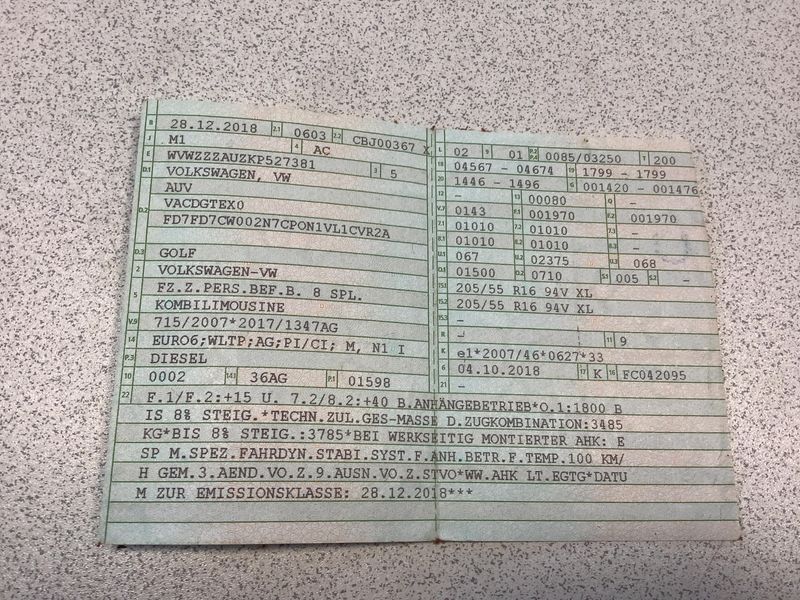 B 28.12.2018 2.1 0603 2.2 CBJ00367 X
J M1 4 AC
E WVWZZZAUZKP527381
D.1 VOLKSWAGEN, VW 3 5
AUV
D.2 VACDGTEX0
FD7FD7CW002N7CPON1VL1CVR2A
D.3 GOLF
2 VOLKSWAGEN-VW
5 FZ.Z.PERS.BEF.B. 8 SPL.
KOMBILIMOUSINE
V.9 715/2007*2017/1347AG
14 EURO6;WLTP;AG;PI/CI; M, N1 I
P.3 DIESEL
10 0002 14.1 36AG P.1 01598
L 02 9 01 P.2 P.4 0085/03250 T 200
18 04567 - 04674 19 1799 - 1799
20 1446 - 1496 G 001420 - 001476
12 - 13 00080 Q -
V.7 0143 F.1 001970 F.2 001970
7.1 01010 7.2 01010 7.3 -
8.1 01010 8.2 01010 8.3 -
U.1 067 U.2 02375 U.3 068
O.1 01500 O.2 0710 S.1 005 S.2 -
15.1 205/55 R16 94V XL
15.2 205/55 R16 94V XL
15.3 -
R - 11 9
K e1*2007/46*0627*33
6 04.10.2018 17 K 16 FC042095
21 -
22 F.1/F.2:+15 U. 7.2/8.2:+40 B.ANHÄNGEBETRIEB*O.1:1800 B
IS 8% STEIG.*TECHN.ZUL.GES-MASSE D.ZUGKOMBINATION:3485
KG*BIS 8% STEIG.:3785*BEI WERKSEITIG MONTIERTER AHK: E
SP M.SPEZ.FAHRDYN.STABI.SYST.F.ANH.BETR.F.TEMP.100 KM/
H GEM.3.AEND.VO.Z.9.AUSN.VO.Z.STVO*WW.AHK LT.EGTG*DATU
M ZUR EMISSIONSKLASSE: 28.12.2018***